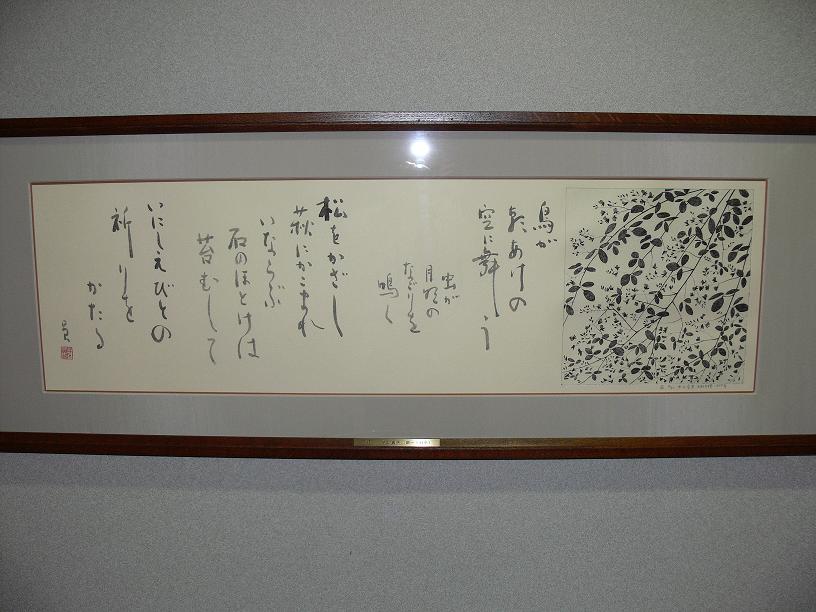 鳥が
夜あけの
空に舞う
虫が
月影の
なごりを
鳴く
松をかざし
萩にかこまれ
いならぶ
石のほとけは
苔むして
いにしえびとの
祈りを
かたる